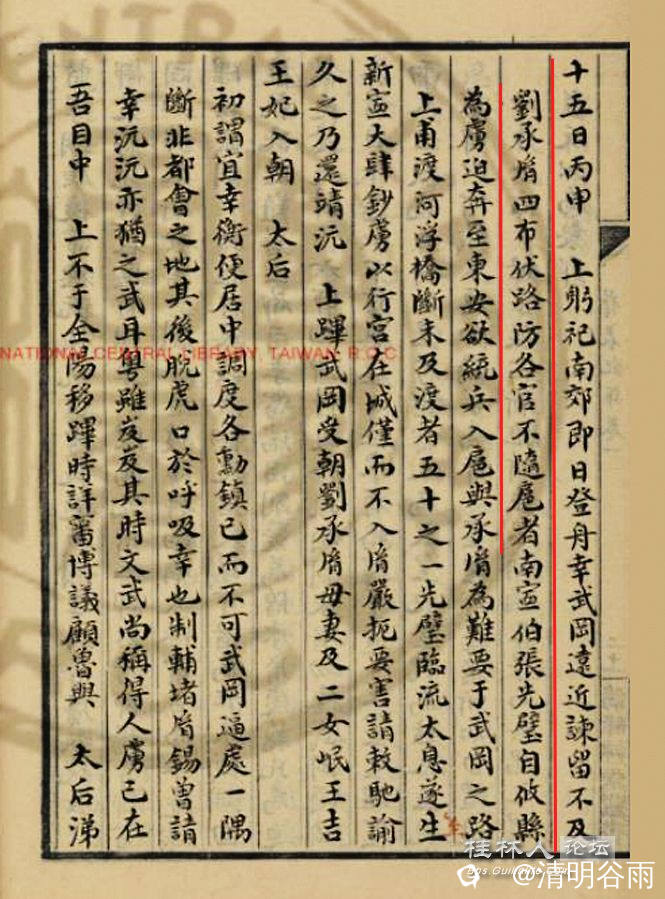 十五日丙申　上躬祀南郊即日登舟幸武岡遠近諫留不及
劉承㣧四布伏路防各官不隨扈者南寍伯張先璧自攸縣
為虜迫奔至東安欲統兵入扈與承㣧為難要于武岡之路
上甫渡河浮橋斷未及渡者五十之一先璧臨流太息遂生
新寍大肆鈔虜以行宮在城僅而不入㣧嚴扼要害請敕馳諭
久之乃還靖沅　上蹕武岡受朝劉承㣧母妻及二女岷王吉
王妃入朝　太后
初謂宜幸衡便居中調度各勳鎮已而不可武岡逼處一隅
斷非都會之地其後脫虎口於呼吸幸也制輔堵㣧錫曾請
幸沅沅亦猶之武耳粵雖岌岌其時文武尚稱得人虜已在
吾目中　上不于全陽移蹕時詳審博議顧魯與　太后涕
NATIONAL CENTRAL LIBRARY, TAIWAN, R.O.C
桂林人论坛
bbs.Guilinlife.com
@清明谷雨